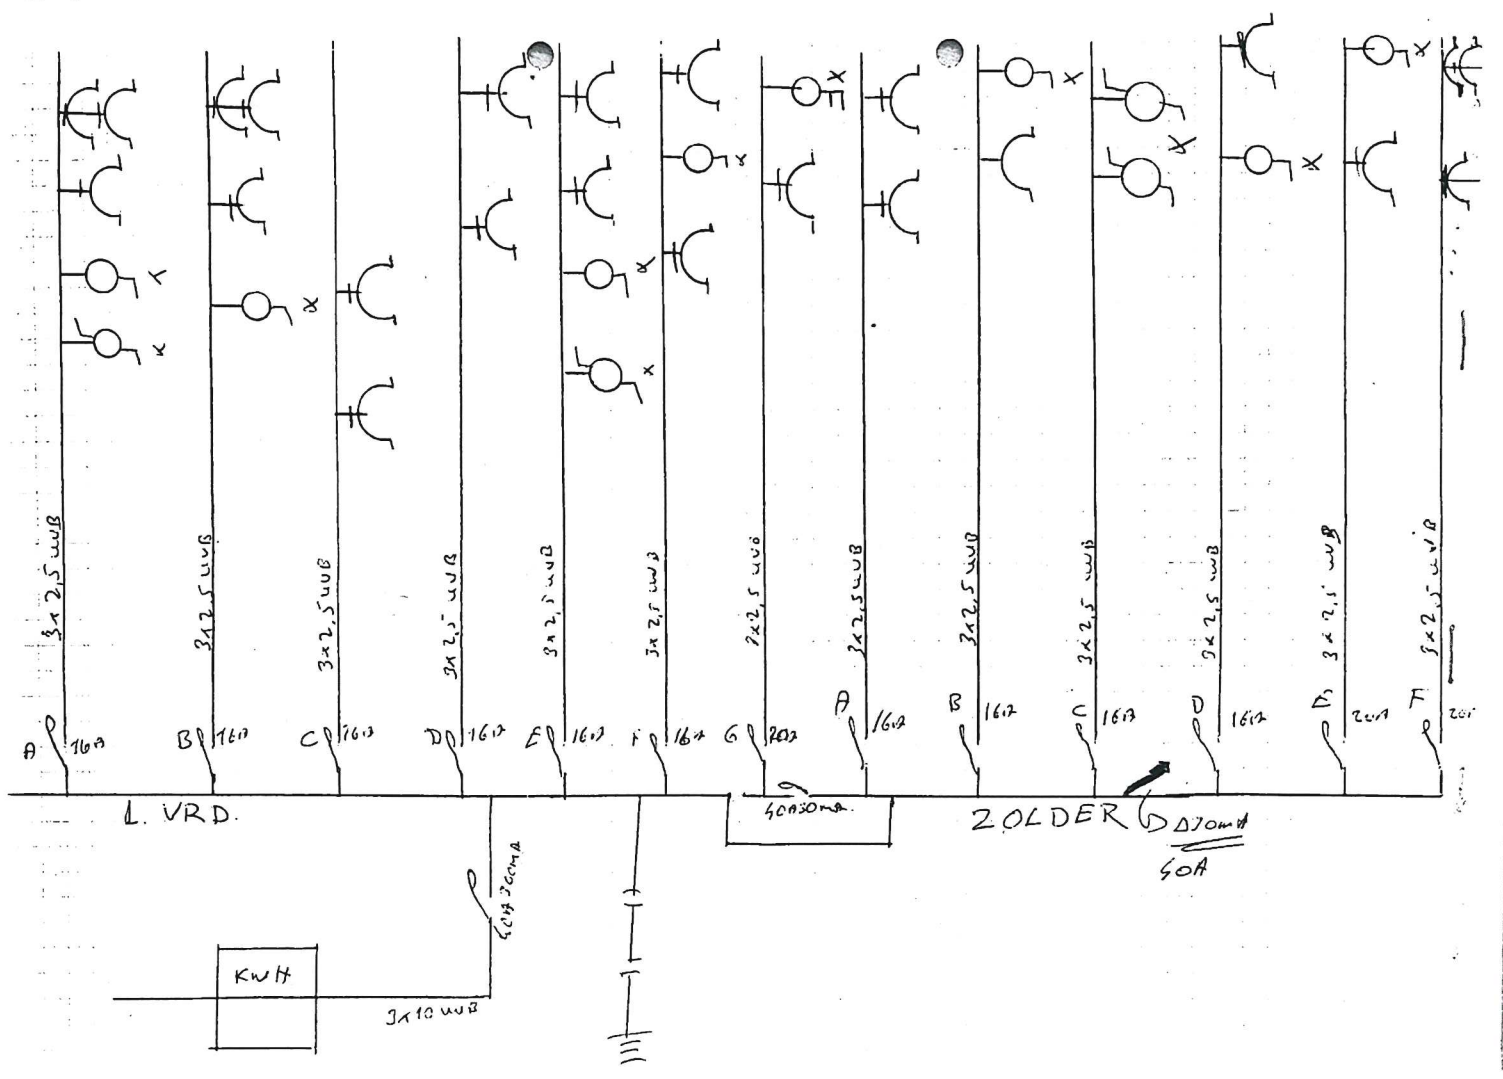 3x2,5 uvB
3x2,5 uvB
3x2,5 uvB
3x2,5 uvB
3x2,5 uvB
3x2,5 uvB
3x2,5 uvB
3x2,5 uvB
3x2,5 uvB
3x2,5 uvB
3x2,5 uvB
3x2,5 uvB
3x2,5 uvB
A 16A
B 16A
C 16A
D 16A
E 16A
F 16A
G 20A
A 16A
B 16A
C 16A
D 16A
E 20A
F
1. VRD.
40A30mA.
ZOLDER
Δ30mA
40A
40A 300mA
KWH
3x10 uvB